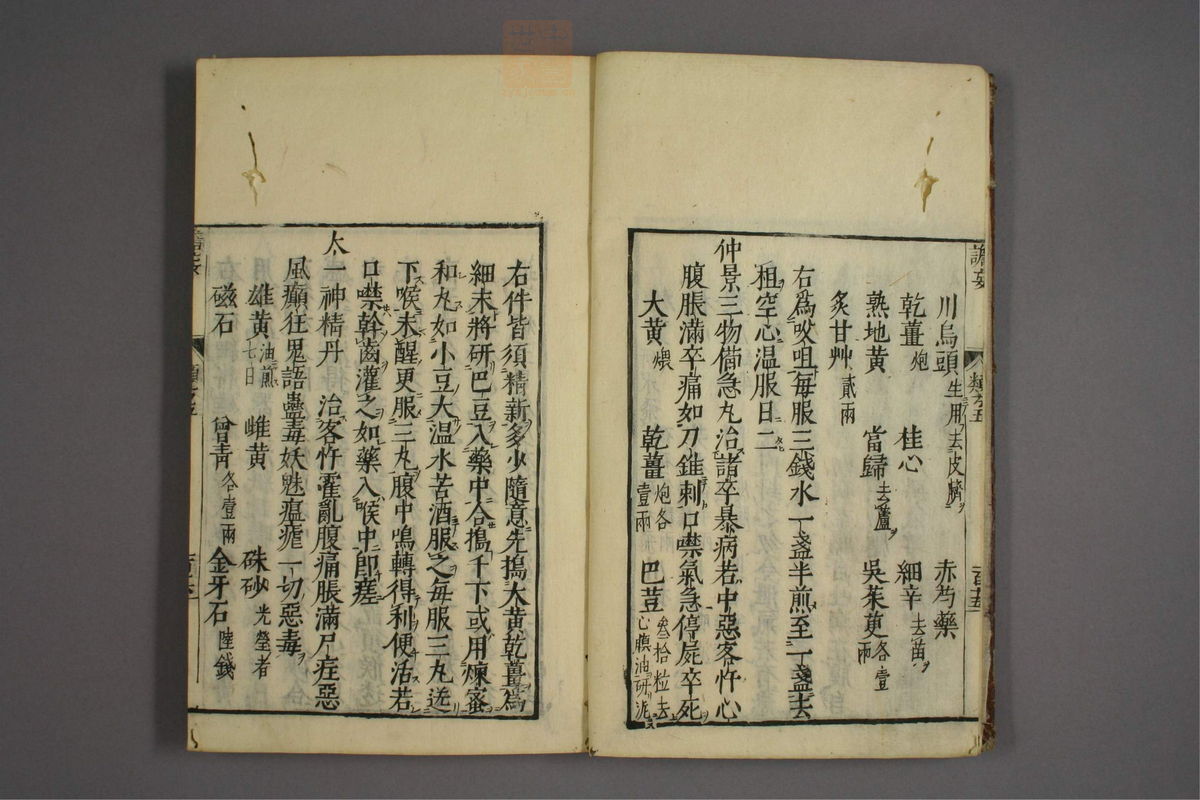 川烏頭生用去皮臍　赤芍藥
乾薑炮　桂心　細辛去苗
熟地黄　當歸去蘆　吳茱萸各壹兩
炙甘艸貳兩
右為㕮咀每服三錢水一盞半煎至一盞去
租空心温服日二
仲景三物備急丸治諸卒暴病若中惡客忤心
腹脹滿卒痛如刀錐刺口噤氣急停屍卒死
大黄煨　乾薑炮各壹兩　巴荳叁拾粒去心膜油研泥
右件皆須精新多少隨意先搗大黄乾薑為
細末將研巴豆入藥中合搗千下或用煉蜜
和丸如小豆大温水苦酒服之每服三丸送
下喉未醒更服三丸腹中鳴轉得利便活若
口噤斡齒灌之如藥入喉中即瘥
太一神精丹　治客忤霍亂腹痛脹滿尸疰惡
風癲狂鬼語蠱毒妖魅瘟瘧一切惡毒
雄黄油煎七日　雌黄　硃砂光瑩者
磁石　曾青各壹兩　金牙石陸錢